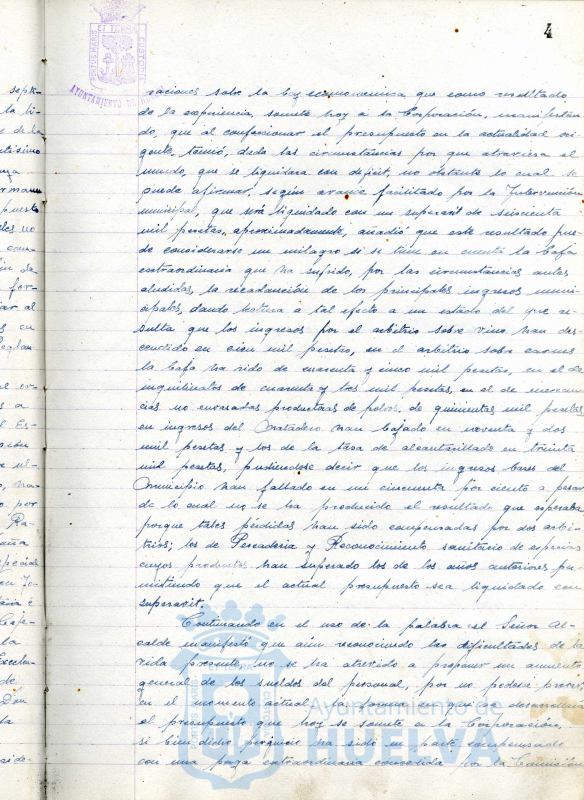 4
PORTUS MARIS ET TERRAE CUSTODIA
AYUNTAMIENTO DE
raciones sobre la Ley economica que como resultado
de la experiencia, somete hoy a la Corporación, manifestan
do, que al confeccionar el presupuesto en la actualidad vi-
gente, temió, dada las circunstancias por que atraviesa el
mundo, que se liquidara con déficit, no obstante lo cual se
puede afirmar, según avance facilitado por la Intervención
municipal, que será liquidado con un superavit de
mil pesetas, aproximadamente, añadió que este resultado pue-
de considerarse un milagro si se tiene en cuenta la baja
extraordinaria que ha sufrido, por las circunstancias antes
aludidas, la recaudación de los principales ingresos muni-
cipales, dando lectura a tal efecto a un estado del que re-
sulta que los ingresos por el arbitrio sobre vino han des-
cendido en cien mil pesetas, en el arbitrio sobre carnes
la baja ha sido de cuarenta y cinco mil pesetas, en el de
inquilinatos de cuarenta y dos mil pesetas, en el de mercan-
cias no envasadas productoras de polvo, de quinientas mil pesetas
en ingresos del Matadero han bajado en noventa y dos
mil pesetas y los de la tasa de alcantarillado en treinta
mil pesetas, pudiendose decir que los ingresos bases del
Municipio han fallado en un cincuenta por ciento a pesar
de lo cual no se ha producido el resultado que esperaba
porque tales pérdidas han sido compensadas por dos arbi-
trios; los de Pescaderia y Reconocimiento sanitario de especies
cuyos productos han superado los de los años anteriores per-
mitiendo que el actual presupuesto sea liquidado con
superavit.
Continuando en el uso de la palabra el Señor Al-
calde manifestó que aún reconociendo las dificultades de la
vida presente, no se ha atrevido a proponer un aumento
general de los sueldos del personal, por no poderse prever
en el momento actual la forma en que se desarrollará
el presupuesto que hoy se somete a la Corporación,
si bien dicho perjuicio ha sido en parte compensado
con una paga extraordinaria concedida por la Comisión
Ayuntamiento de
HUELVA